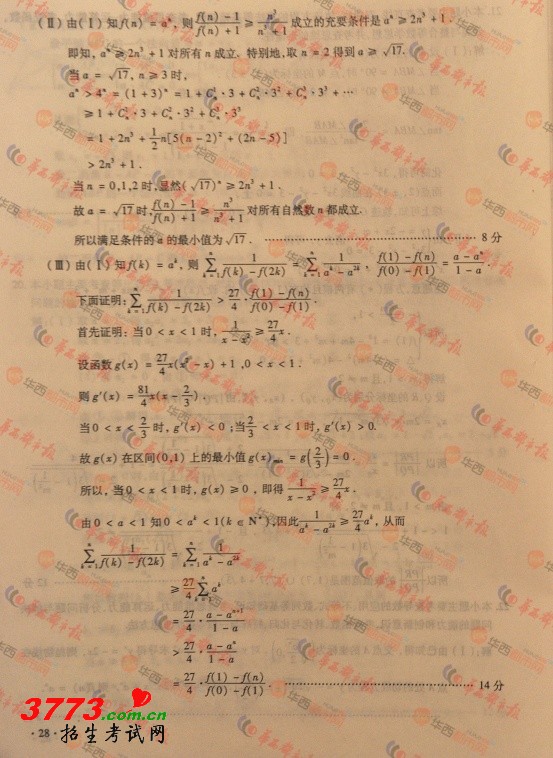 (Ⅱ)由(Ⅰ)知f(n) = aⁿ, 则 (f(n) - 1)/(f(n) + 1) ≥ n³/(n³ + 1) 成立的充要条件是 aⁿ ≥ 2n³ + 1.
即知, aⁿ ≥ 2n³ + 1 对所有 n 成立. 特别地, 取 n = 2 得到 a ≥ √17.
当 a = √17, n ≥ 3 时,
aⁿ > 4ⁿ = (1 + 3)ⁿ = 1 + C¹ₙ · 3 + C²ₙ · 3² + C³ₙ · 3³ + ⋯
≥ 1 + C¹ₙ · 3 + C²ₙ · 3² + C³ₙ · 3³
= 1 + 2n³ + 1/2 n[5(n - 2)² + (2n - 5)]
> 2n³ + 1.
当 n = 0,1,2 时, 显然(√17)ⁿ ≥ 2n³ + 1.
故 a = √17 时, (f(n) - 1)/(f(n) + 1) ≥ n³/(n³ + 1) 对所有自然数 n 都成立.
所以满足条件的 a 的最小值为 √17. ⋯⋯⋯⋯ 8 分
(Ⅲ)由(Ⅰ)知 f(k) = aᵏ, 则 ∑ₖ₌₁ⁿ 1/(f(k) - f(2k)) = ∑ₖ₌₁ⁿ 1/(aᵏ - a²ᵏ), (f(1) - f(n))/(f(0) - f(1)) = (a - aⁿ)/(1 - a).
下面证明: ∑ₖ₌₁ⁿ 1/(f(k) - f(2k)) > 27/4 · (f(1) - f(n))/(f(0) - f(1)).
首先证明: 当 0 < x < 1 时, 1/(x - x²) ≥ 27/4 x.
设函数 g(x) = 27/4 x(x² - x) + 1, 0 < x < 1.
则 g′(x) = 81/4 x(x - 2/3).
当 0 < x < 2/3 时, g′(x) < 0; 当 2/3 < x < 1 时, g′(x) > 0.
故 g(x) 在区间(0,1) 上的最小值 g(x)min = g(2/3) = 0.
所以, 当 0 < x < 1 时, g(x) ≥ 0, 即得 1/(x - x²) ≥ 27/4 x.
由 0 < a < 1 知 0 < aᵏ < 1(k ∈ N*), 因此 1/(aᵏ - a²ᵏ) ≥ 27/4 aᵏ, 从而
∑ₖ₌₁ⁿ 1/(f(k) - f(2k)) = ∑ₖ₌₁ⁿ 1/(aᵏ - a²ᵏ)
≥ 27/4 ∑ₖ₌₁ⁿ aᵏ
= 27/4 · (a - aⁿ⁺¹)/(1 - a)
> 27/4 · (a - aⁿ)/(1 - a)
= 27/4 · (f(1) - f(n))/(f(0) - f(1)). ⋯⋯⋯⋯ 14 分
3773.com.cn
· 28 · 招生考试网